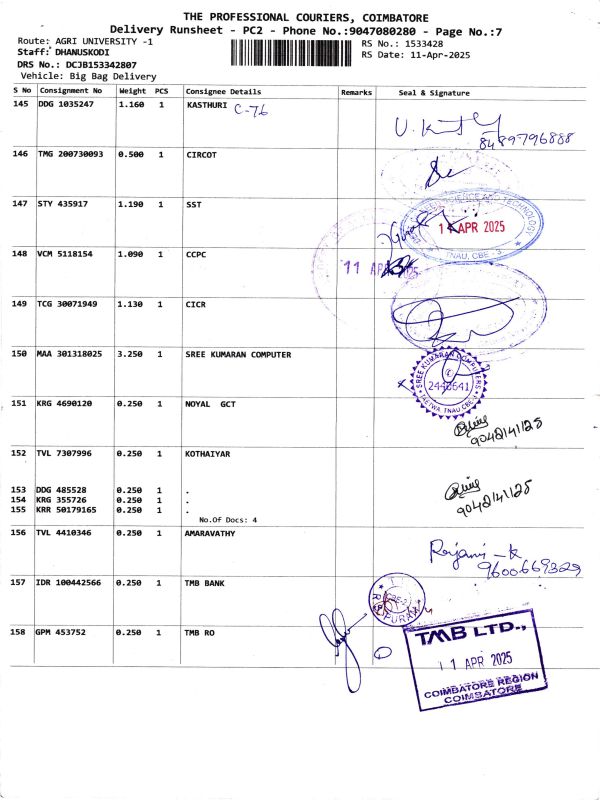 THE PROFESSIONAL COURIERS, COIMBATORE
Delivery Runsheet - PC2 - Phone No.:9047080280 - Page No.:7
Route: AGRI UNIVERSITY -1
Staff: DHANUSKODI
DRS No.: DCJB153342807
Vehicle: Big Bag Delivery
RS No.: 1533428
RS Date: 11-Apr-2025
S No Consignment No Weight PCS Consignee Details Remarks Seal & Signature
145 DDG 1035247 1.160 1 KASTHURI C-76
8489796888
146 TMG 200730093 0.500 1 CIRCOT
147 STY 435917 1.190 1 SST
SCIENCE AND TECHNOLOGY
APR 2025
TNAU, CBE-3.
148 VCM 5118154 1.090 1 CCPC
11 APR 2025
149 TCG 30071949 1.130 1 CICR
150 MAA 301318025 3.250 1 SREE KUMARAN COMPUTER
SREE KUMARAN COMPUTERS
2440641
TNAU CBE-3
151 KRG 4690120 0.250 1 NOYAL GCT
9042141128
152 TVL 7307996 0.250 1 KOTHAIYAR
153 DDG 485528 0.250 1 .
154 KRG 355726 0.250 1 .
155 KRR 50179165 0.250 1 .
No.Of Docs: 4
9042141128
156 TVL 4410346 0.250 1 AMARAVATHY
Ranjani - K
9600669329
157 IDR 100442566 0.250 1 TMB BANK
158 GPM 453752 0.250 1 TMB RO
TMB LTD.,
11 APR 2025
COIMBATORE REGION
COIMBATORE